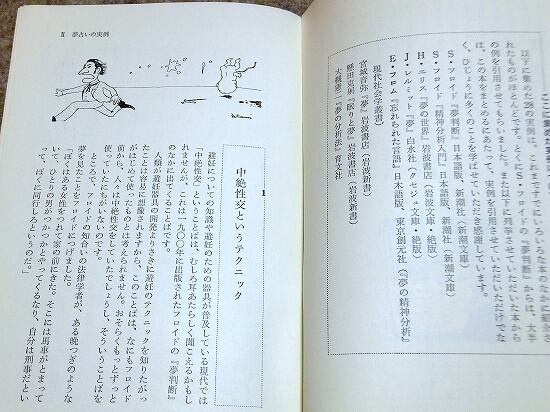 ここに集めた実例
以下に集めた28の実例は、これまですでにいろいろな本のなかに紹介さ
れたものがほとんどです。とくにS・フロイドの『夢判断』からは、大半
の例を引用させてもらいました。または下に列挙させていただいた本から
は、この本をまとめるにあたって、実例を引用させていただいただけでな
く、ひじょうに多くのことを学ばせていただき感謝しています。
S・フロイド『夢判断』日本語版、新潮社（新潮文庫）
S・フロイド『精神分析入門』日本語版、新潮社（新潮文庫）
H・エリス『夢の世界』岩波書店（岩波文庫・絶版）
J・レルミット『夢』白水社（クセジュ文庫・絶版）
E・フロム『忘れられた言語』日本語版、東京創元社（『夢の精神分析』
現代社会学叢書）
宮城音弥『夢』岩波書店（岩波新書）
堅田克朗『眠りと夢』岩波書店（岩波新書）
大槻憲二『夢の分析法』育文社
Ⅱ 夢占いの実例
1
中絶性交というテクニック
避妊についての知識や避妊のための器具が普及している現代では
「中絶性交」ということばは、むしろ耳あたらしく聞こえるかもし
れませんが、これは一九〇〇年に出版されたフロイドの『夢判断』
のなかに出てくることばです。
人類が避妊器具の開発よりさきに避妊のテクニックを知りたがっ
たことは容易に想像されますから、このことばは、なにもフロイド
がはじめて使ったものとは考えられません。おそらくもっとずっと
前から、人々は中絶性交をしていたでしょうし、そういうことばを
使っていたにちがいないのです。
ところで、フロイドの知合いの法律学者が、ある晩つぎのような
夢を見たことをフロイドにつげました。
「ぼくはある女性をつれて家の前にきた。そこには馬車がとまって
いて、ひとりの男がつかつかとやってくるなり、自分は刑事だとい
って、ぼくに同行しろというのだ」。